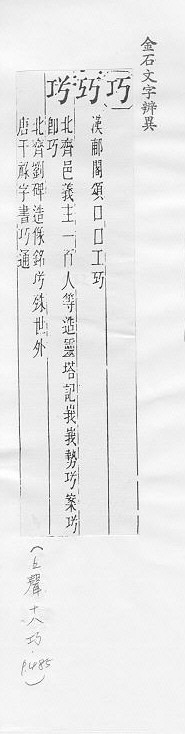 金石文字辨異
巧
漢郙閣頌口口工巧
北齊邑義主一百人等造靈塔記峩峩勢巧案巧
即巧
北齊劉碑造像銘巧殊世外
唐干祿字書巧通
(上聲 十八巧. P.485)